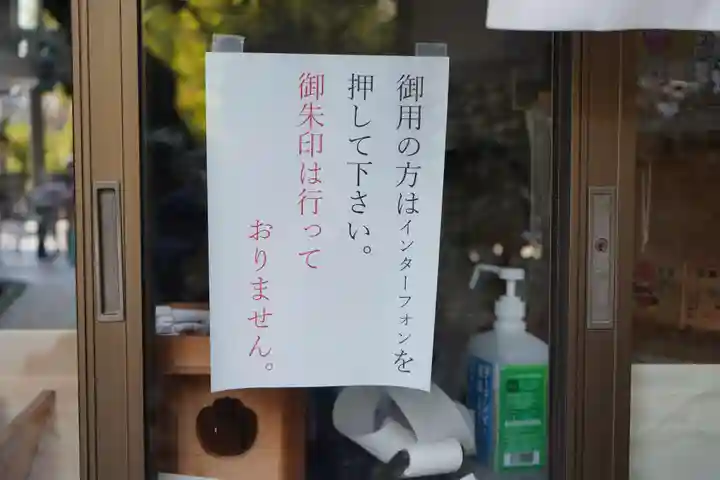 御用の方はインターフォンを
押して下さい。
御朱印は行って
おりません。